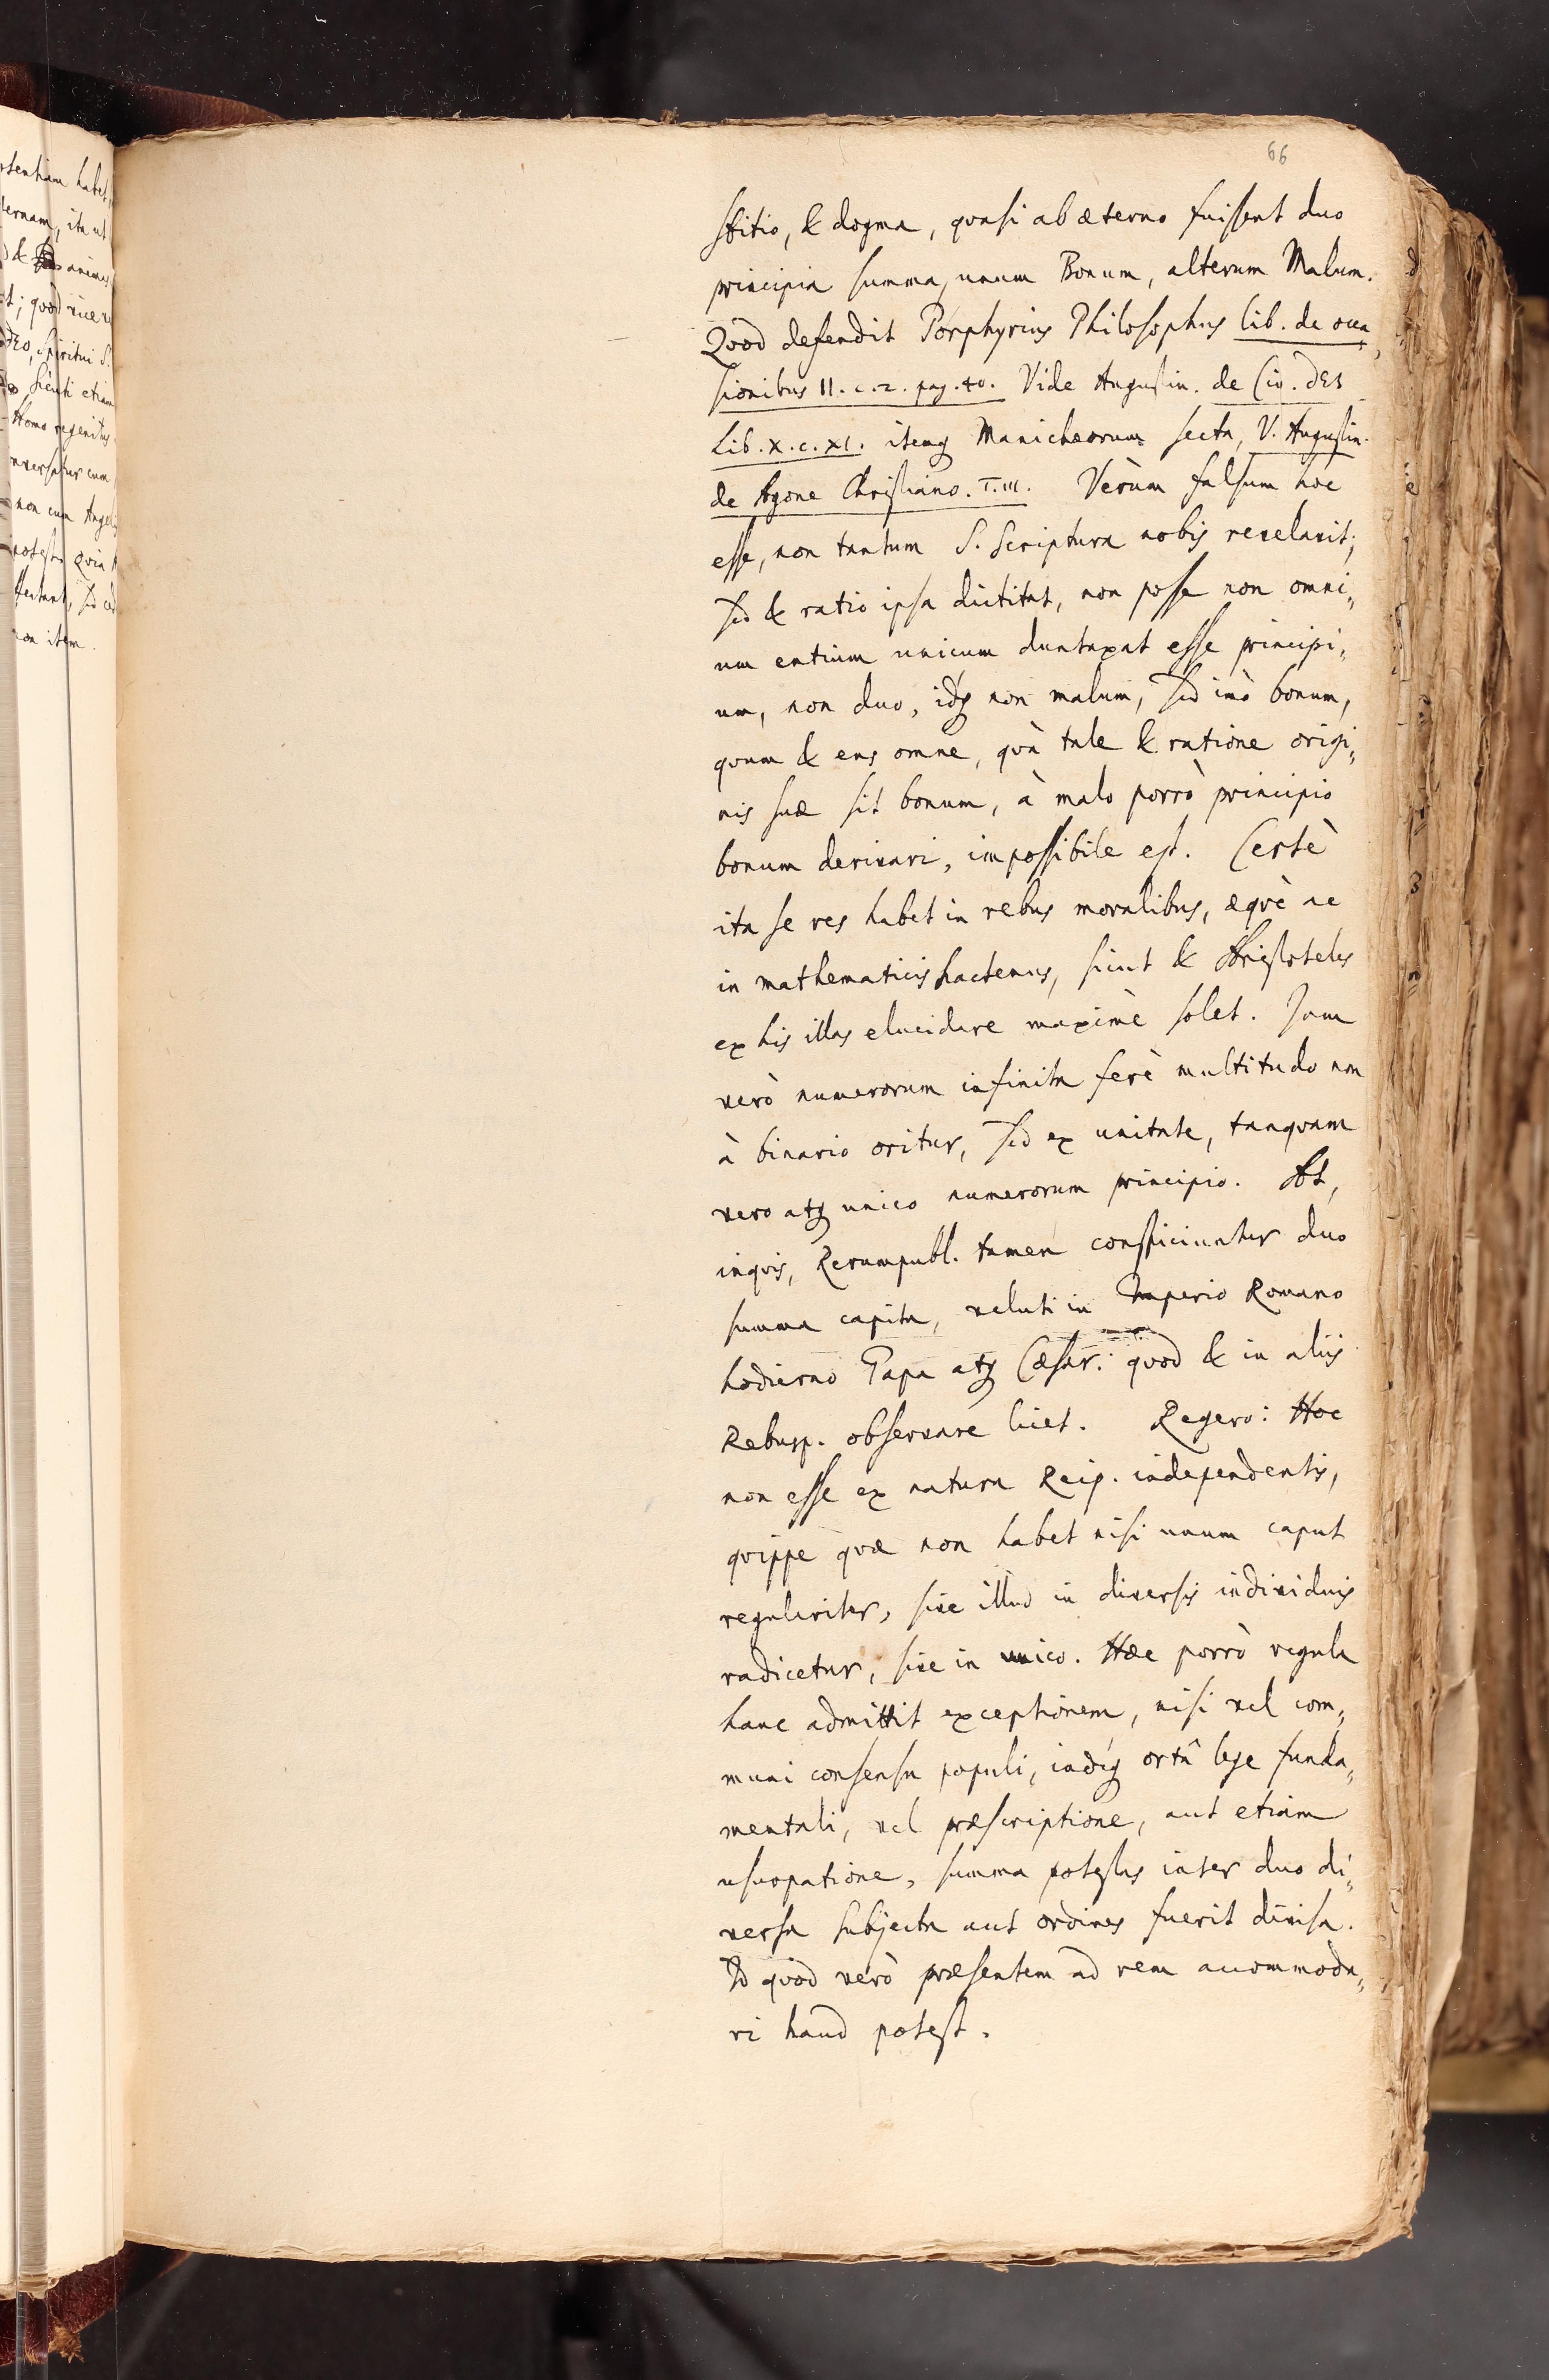 66
stitio, & dogma, quasi ab æterno fuissent duo
principia summa, unum Bonum, alterum Malum.
Quod defendit Porphyrius Philosophus lib. de occa„
sionibus II. c. 2. pag. 40. Vide Augustin. de Civ. DEI
Lib. X. c. XI. itemq Manichæorum secta, V. Augustin.
de Agone Christiano. T. III. Verùm falsum hoc
esse, non tantum S. Scriptura nobis revelavit;
sed & ratio ipsa dictitat, non posse non omni„
um entium unicum duntaxat esse principi„
um, non duo, idq non malum, sed imò bonum,
quum & ens omne, quà tale & ratione origi„
nis suæ sit bonum, à malo porrò principio
bonum derivari, impossibile est. Certè
ita se res habet in rebus moralibus, æquè ac
in mathematicis hactenus, sicut & Aristoteles
ex his illas elucidare maximè solet. Jam
verò numerorum infinita ferè multitudo non
à binario oritur, sed ex unitate, tanquam
vero atq unico numerorum principio. At,
inquis, Rerumpubl. tamen conspiciuntur duo
summa capita, veluti in Imperio Romano
hodierno Papa atq Cæsar: quod & in aliis
Rebusp. observare licet. Regero: Hoc
non esse ex natura Reip. independentis,
quippe quæ non habet nisi unum caput
regulariter, sive illud in diversis individuis
radicetur, sive in unico. Hæc porrò regula
hanc admittit exceptionem, nisi vel com„
muni consensu populi, indéq ortâ lege funda„
mentali, vel præscriptione, aut etiam
usurpatione, summa potestas inter duo di„
versa subjecta aut ordines fuerit divisa.
Id quod verò præsentem ad rem accommoda„
ri haud potest.